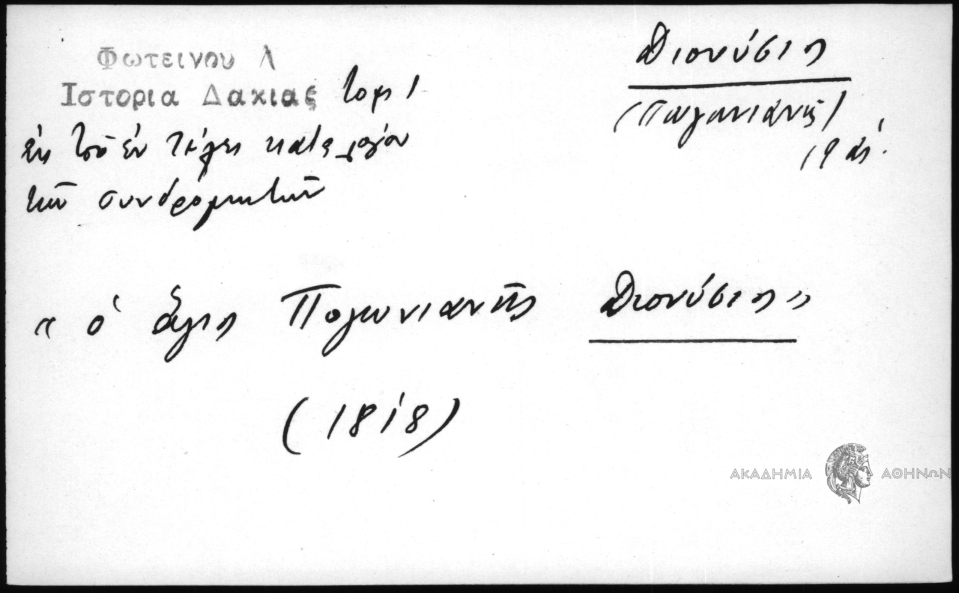 Φωτεινου Λ
Ιστορια Δακιας τομ 1
Διονύσιος
(Πωγωνιανῆς)
19 αἰ.
ἐκ τοῦ ἐν τέλει καταλόγου
τῶν συνδρομητῶν
« ὁ ἅγιος Πογωνιανῆς Διονύσιος »
(1818)
ΑΚΑΔΗΜΙΑ ΑΘΗΝΩΝ